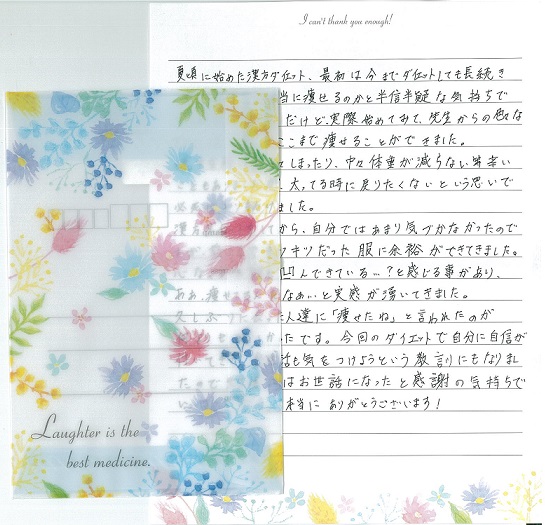 I can't thank you enough!
夏頃に始めた漢方ダイエット、最初は今までダイエットしても長続き
当に痩せるのかと半信半疑な気持ちで
だけど、実際始めてみて、先生からの色々な
ここまで痩せることができました。
てしまったり、中々体重が減らない
、太ってる時に戻りたくないという思いで
ました。
から、自分ではあまり気づかなかったので
キツだった服に余裕ができてきました。
凹んできている…?と感じる事があり、
なぁ…と実感が湧いてきました。
人達に「痩せたね」と言われたのが
ったです。今回のダイエットで自分に自信が
も気をつけようという教訓にもなりまし
はお世話になったと感謝の気持ちで
本当にありがとうございます!
Laughter is the
best medicine.